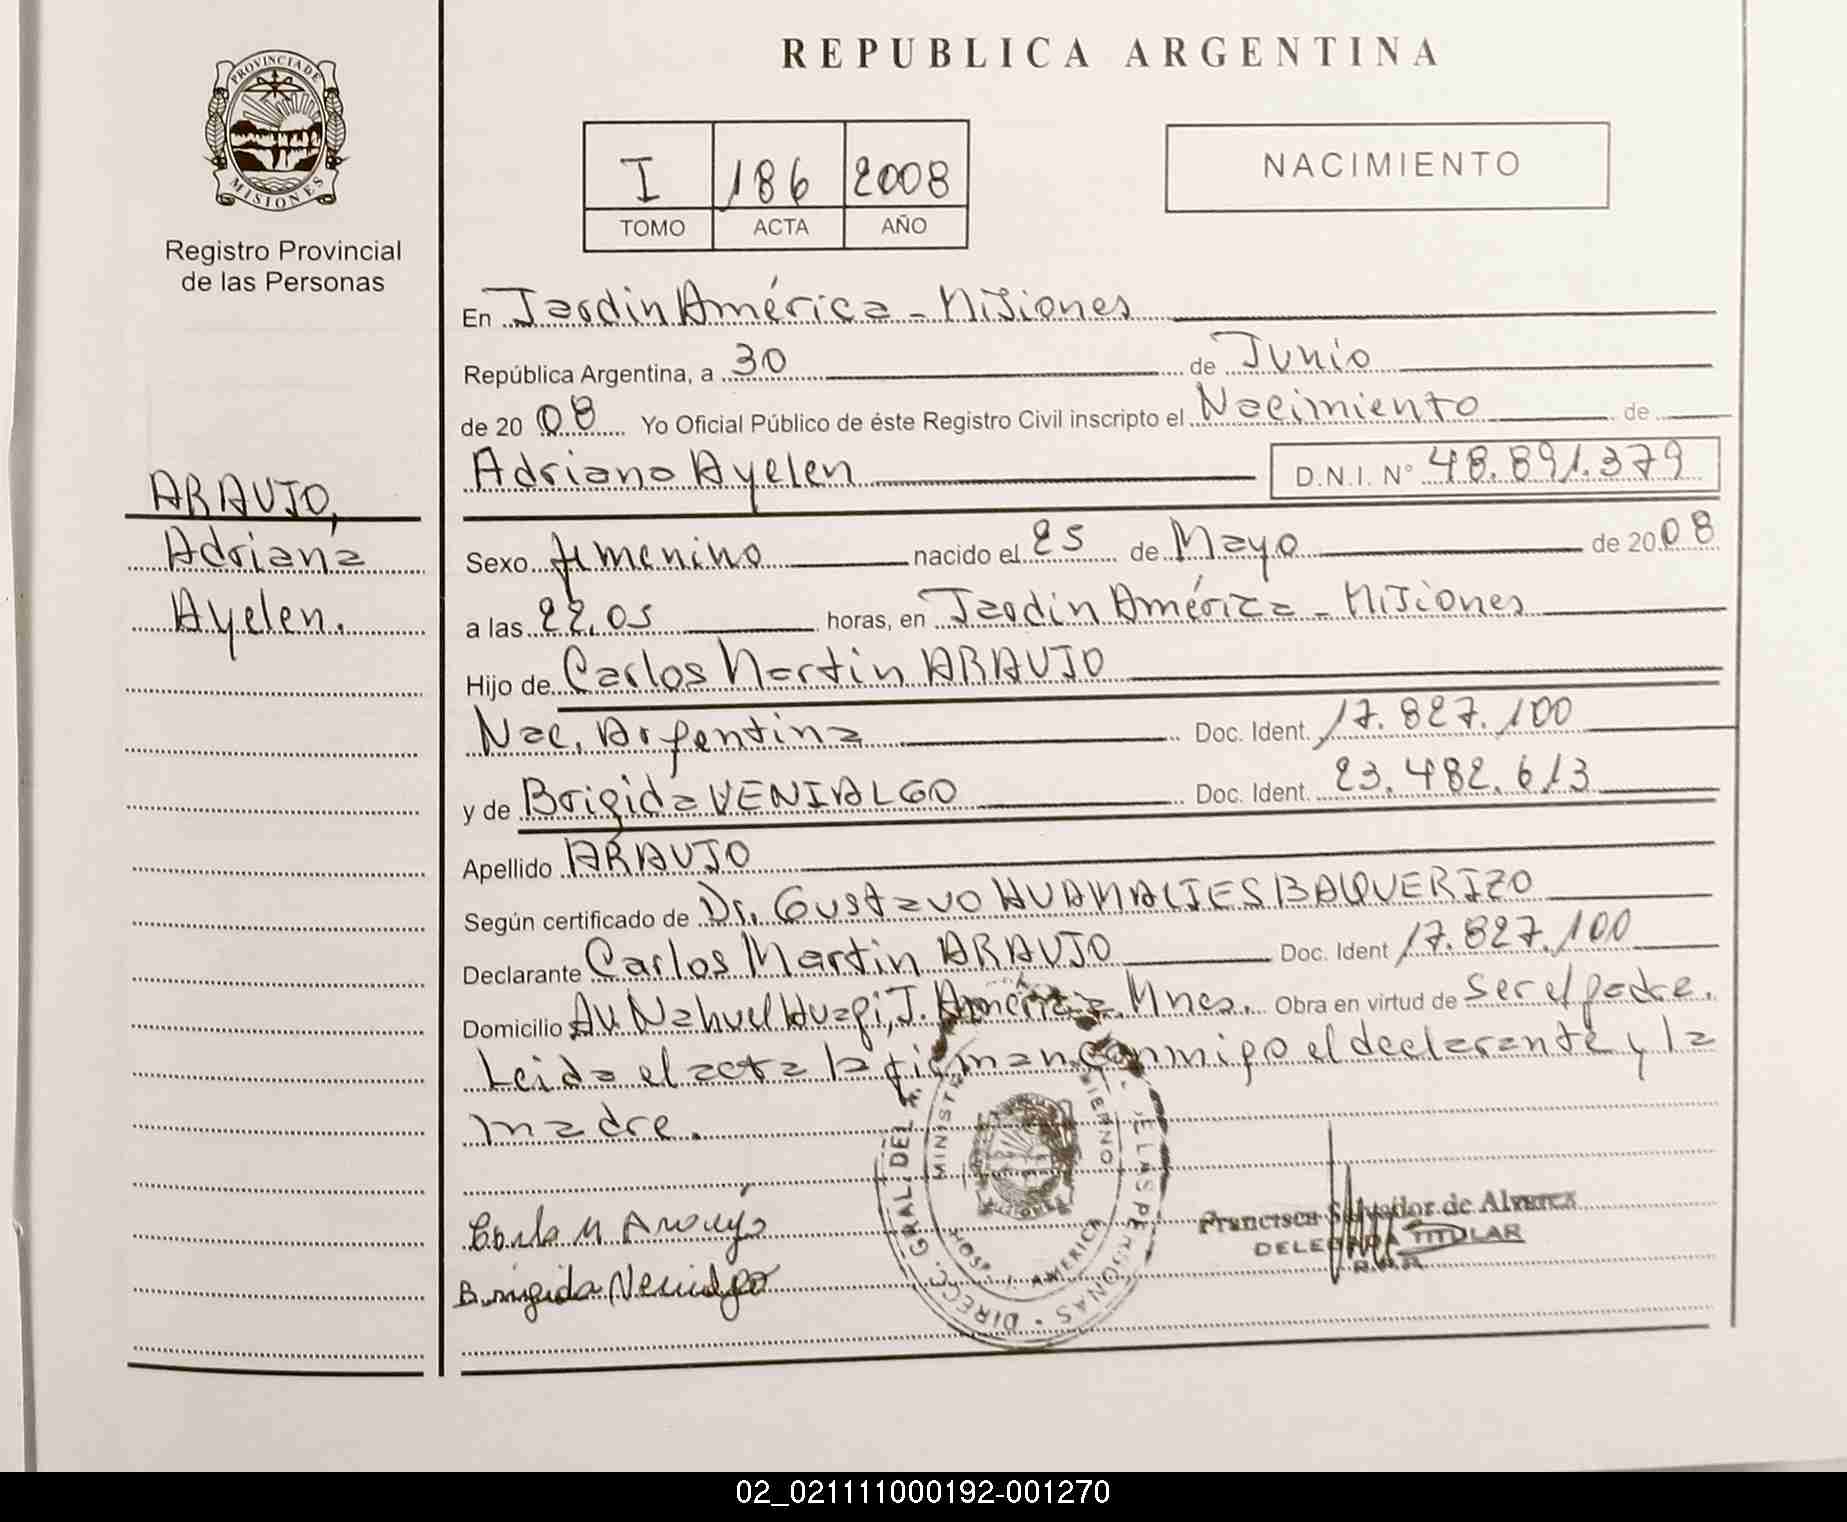 REPUBLICA ARGENTINA
PROVINCIA DE
MISIONES
Registro Provincial
de las Personas
I 186 2008
TOMO ACTA AÑO
NACIMIENTO
En Jardin América - Misiones
República Argentina, a 30 de Junio
de 2008 Yo Oficial Público de éste Registro Civil inscripto el Nacimiento de
Adriana Ayelen D.N.I. N° 48.891.379
ARAUJO,
Adriana
Ayelen.
Sexo femenino nacido el 25 de Mayo de 2008
a las 22.05 horas, en Jardin América - Misiones
Hijo de Carlos Martin ARAUJO
Nac. Argentina Doc. Ident. 17.827.100
y de Brigida VENIALGO Doc. Ident. 23.482.613
Apellido ARAUJO
Según certificado de Dr. Gustavo HUAMALIES BAQUERIZO
Declarante Carlos Martin ARAUJO Doc. Ident 17.827.100
Domicilio Av. Nahuel Huapi, J. América. Mnes. Obra en virtud de ser el padre.
Leida el acta la firman conmigo el declarante y la
madre.
Carlo M Araujo
Brigida Venialgo
DIRECC. GRAL. DEL R. DE LAS PERSONAS
MINISTERIO GOBIERNO
HOSP. J. AMERICA
Francisca Salvador de Alvarez
DELEGADA TITULAR
02_021111000192-001270